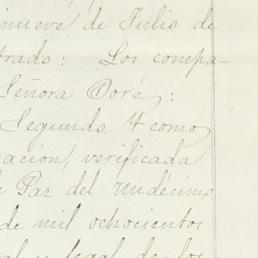 nueve de Julio de
trado: Los compa-
Señora Doré:
Segundo. Y como
acion, verificada
Paz del undécimo
de mil ochocientos
y legal de los